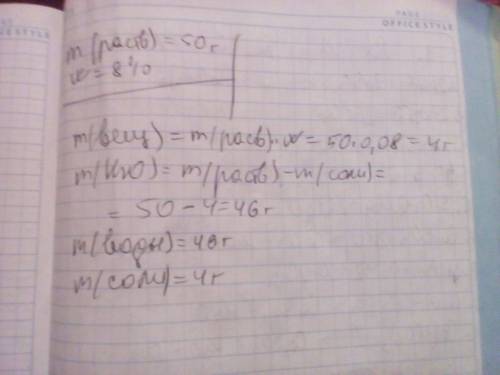 PAGE
OFFICE STYLE
m (раств) = 50 г
w = 8 %
m(вещ) = m(расв)·w = 50·0,08 = 4г
m(H2O) = m(раств) - m(соли) =
= 50 - 4 = 46 г
m(воды) = 46 г
m(соли) = 4 г